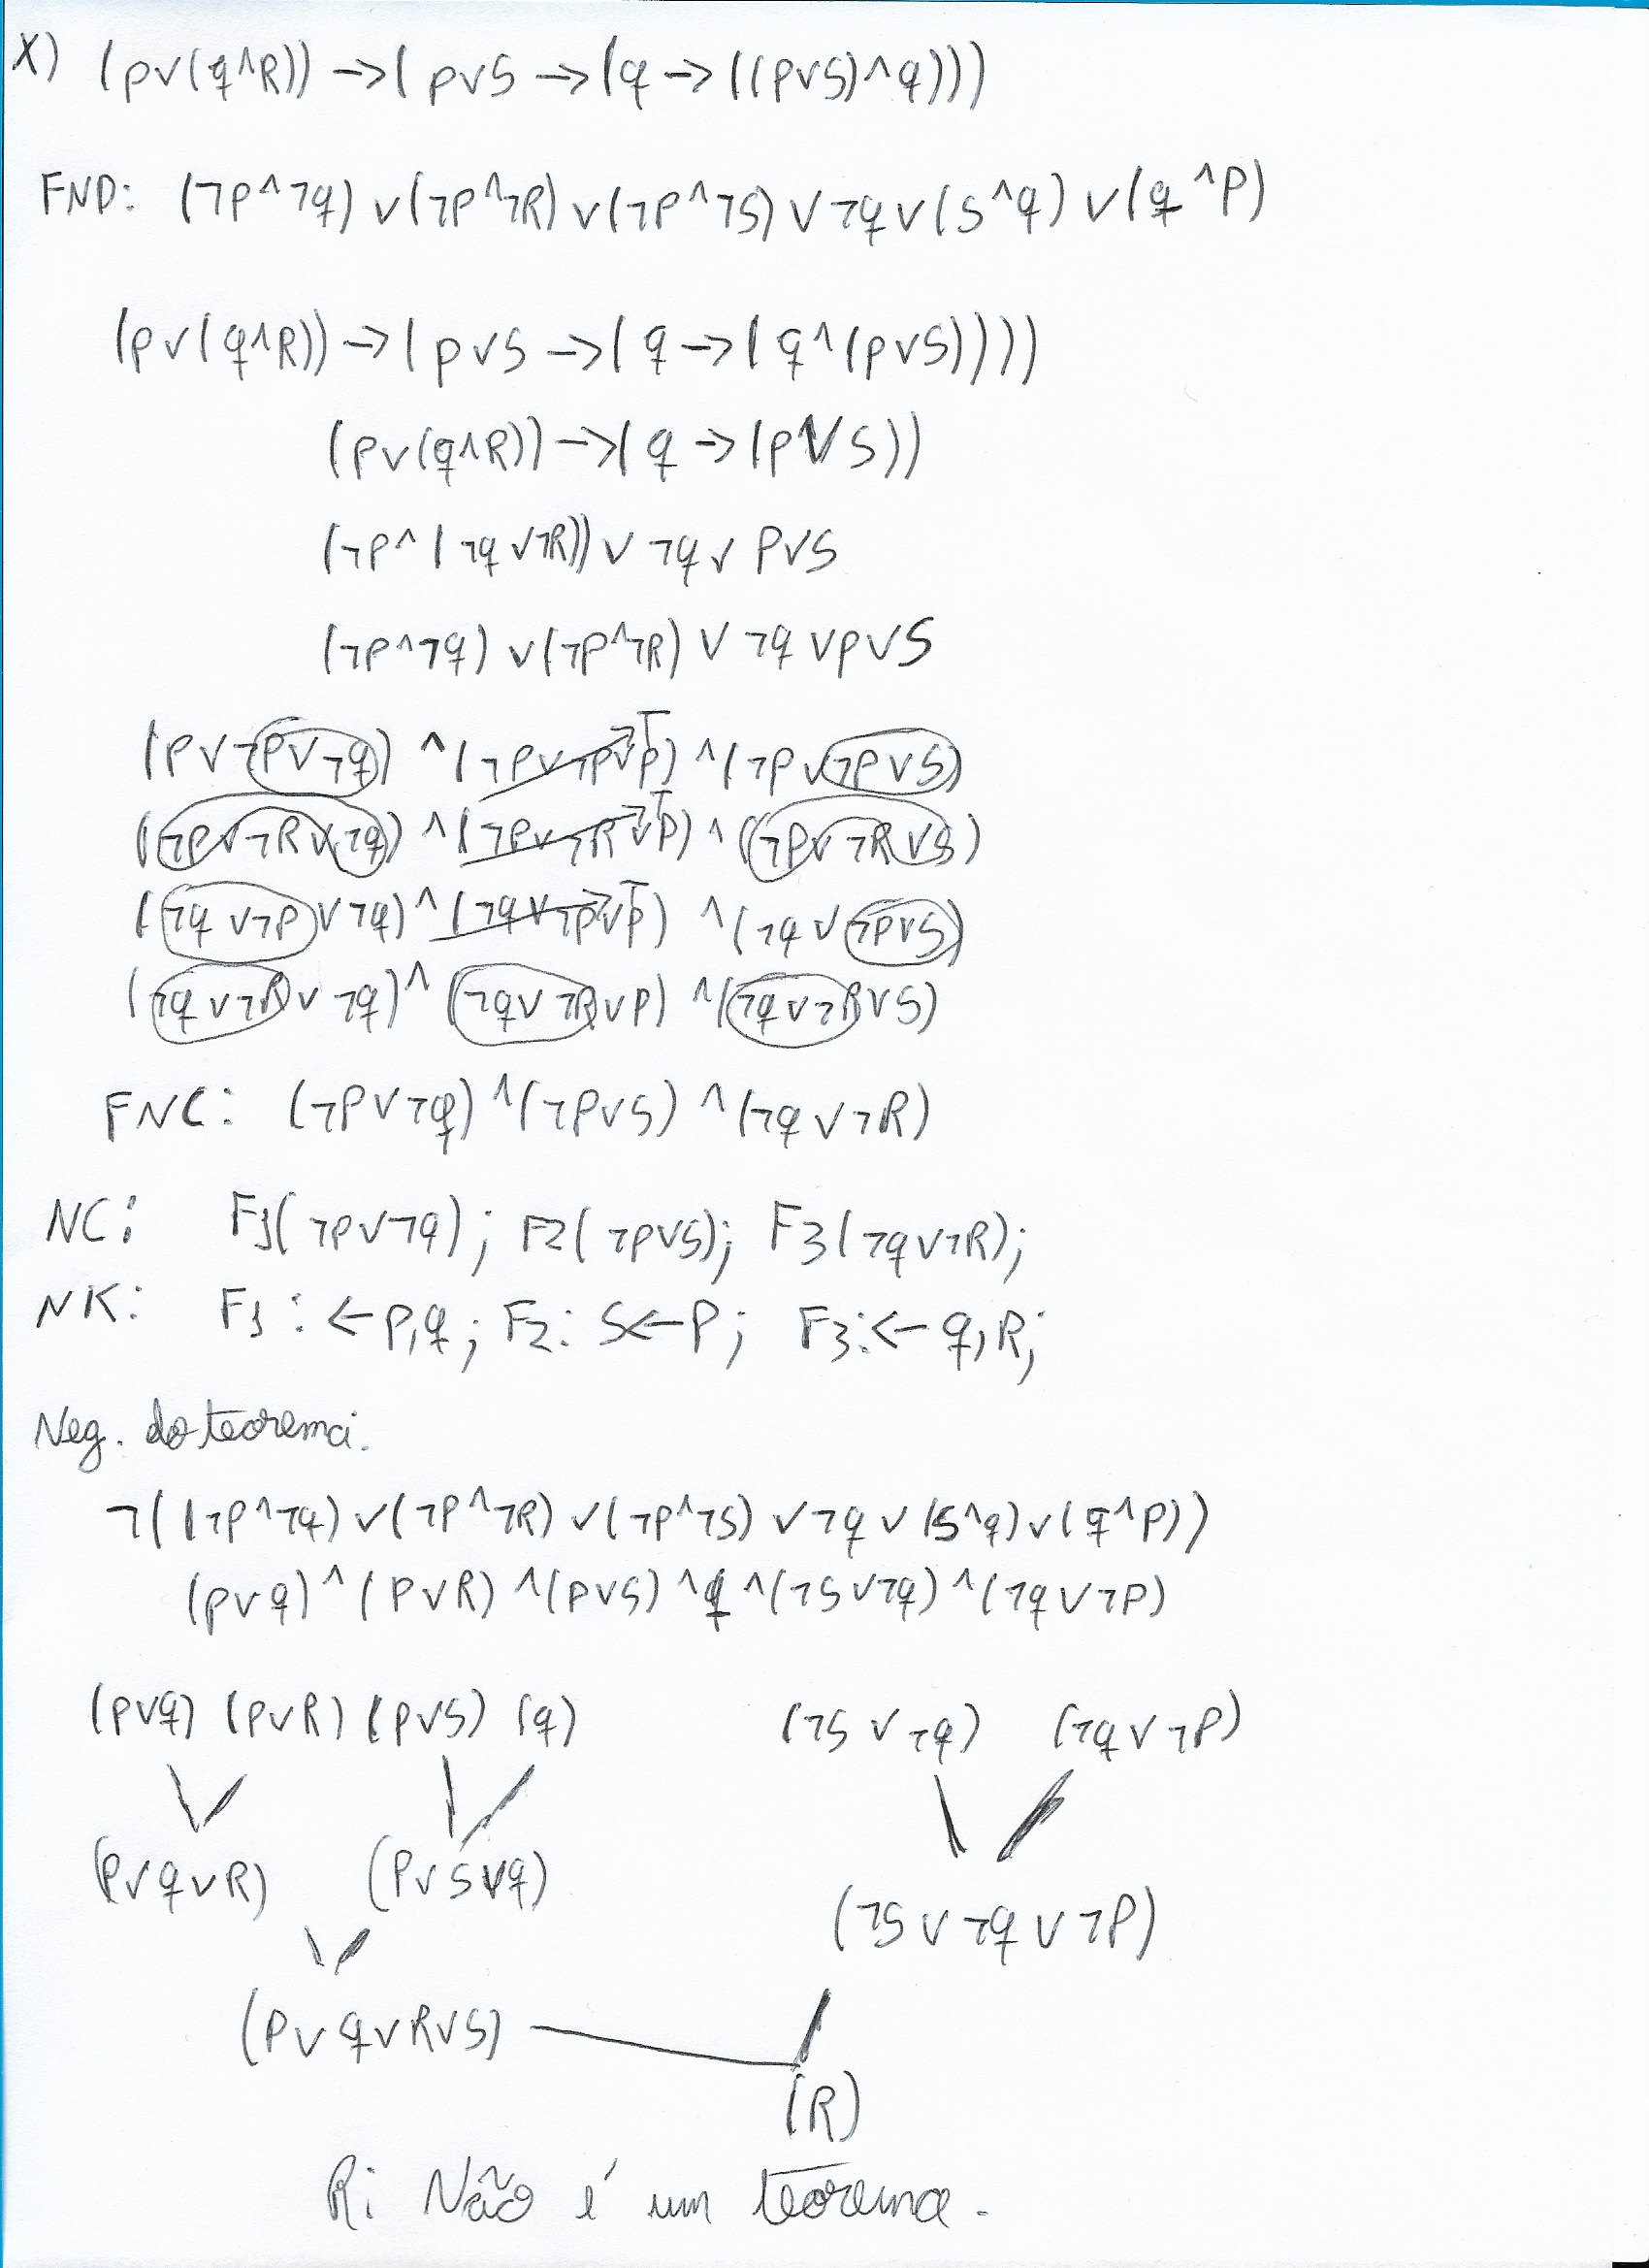 X) (p∨(q∧R)) → (p∨S → (q → ((p∨S)∧q)))
FND: (¬P∧¬q) ∨ (¬P∧¬R) ∨ (¬P∧¬S) ∨ ¬q ∨ (S∧q) ∨ (q∧P)
(p∨(q∧R)) → (p∨S → (q → (q∧(p∨S))))
(p∨(q∧R)) → (q → (p∨S))
(¬P∧(¬q∨¬R)) ∨ ¬q ∨ P∨S
(¬P∧¬q) ∨ (¬P∧¬R) ∨ ¬q ∨ p ∨ S
(p∨¬p∨¬q) ∧ (¬p∨¬p∨p) T ∧ (¬p∨¬p∨S)
(¬p∨¬R∨¬q) ∧ (¬p∨¬R∨p) T ∧ (¬p∨¬R∨S)
(¬q∨¬p∨¬q) ∧ (¬q∨¬p∨p) T ∧ (¬q∨¬p∨S)
(¬q∨¬R∨¬q) ∧ (¬q∨¬R∨P) ∧ (¬q∨¬R∨S)
FNC: (¬P∨¬q) ∧ (¬P∨S) ∧ (¬q∨¬R)
NC: F1(¬p∨¬q); F2(¬p∨S); F3(¬q∨¬R);
NK: F1: ← P,q; F2: S←P; F3: ← q,R;
Neg. do teorema.
¬((¬P∧¬q) ∨ (¬P∧¬R) ∨ (¬P∧¬S) ∨ ¬q ∨ (S∧q) ∨ (q∧P))
(p∨q) ∧ (P∨R) ∧ (p∨S) ∧ q ∧ (¬S∨¬q) ∧ (¬q∨¬P)
(p∨q) (p∨R) (p∨S) (q) (¬S∨¬q) (¬q∨¬P)
(P∨q∨R) (P∨S∨q) (¬S∨¬q∨¬P)
(P∨q∨R∨S)
(R)
R: Não é um teorema.